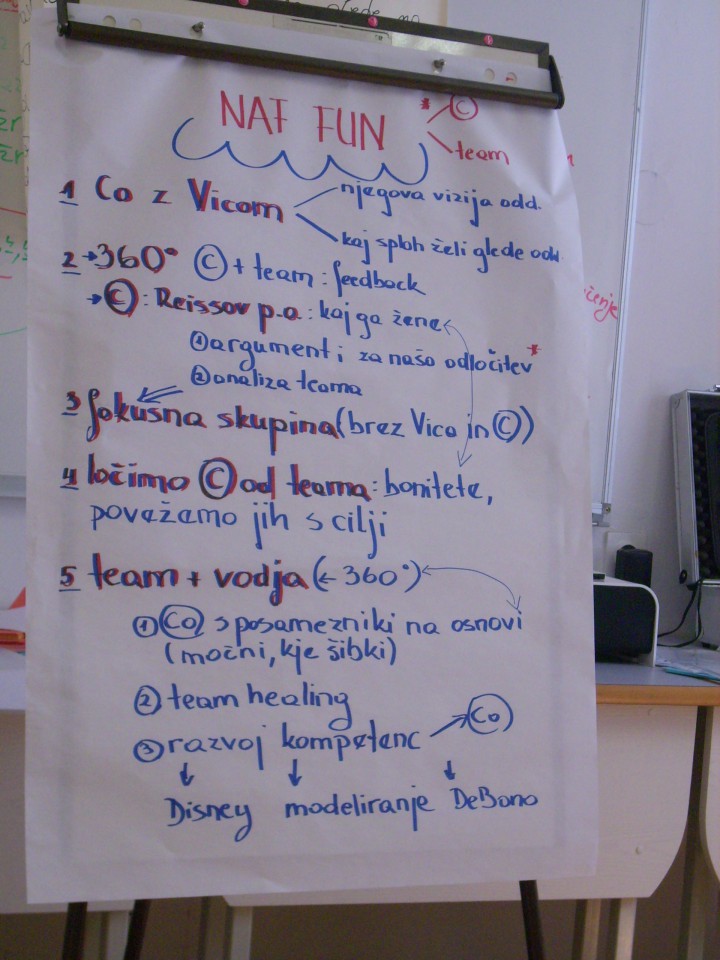 NAF FUN
* Ⓒ
team
1 Co z Vicom
njegova vizija odd.
kaj sploh želi glede odd.
2 → 360° Ⓒ + team : feedback
→ Ⓒ : Reissov p.o. : kaj ga žene
① argumenti za našo odločitev *
② analiza teama
3 fokusna skupina (brez Vica in Ⓒ)
4 ločimo Ⓒ od teama : bonitete,
povežamo jih s cilji
5 team + vodja (← 360°)
① Co s posamezniki na osnovi
(močni, kje šibki)
② team healing
③ razvoj kompetenc → Co
↓ ↓ ↓
Disney modeliranje DeBono